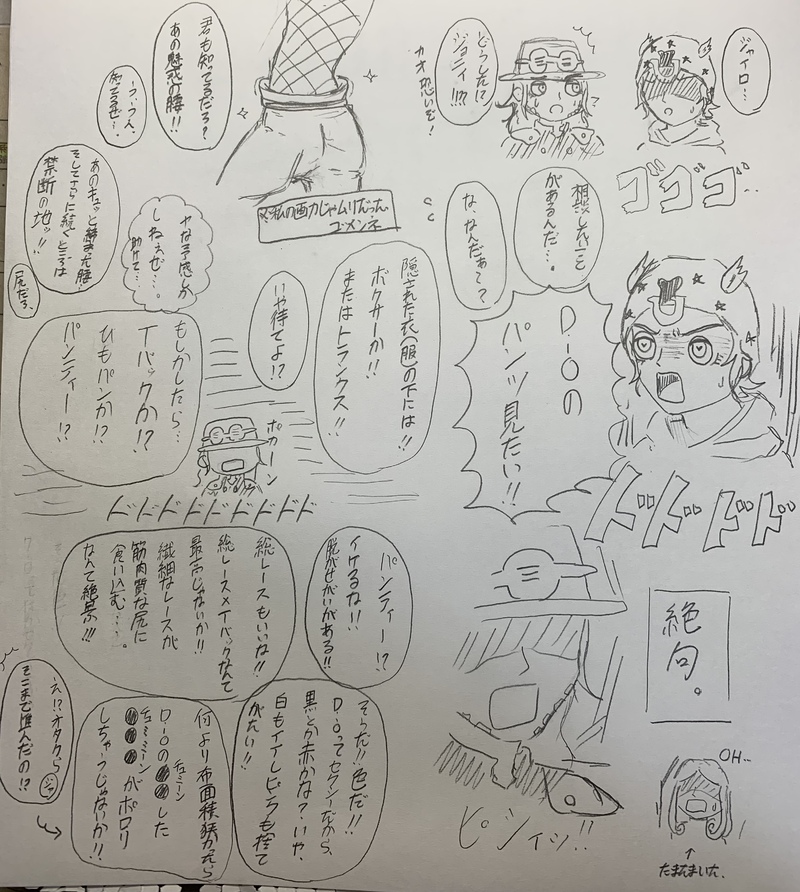 ジャイロ…
どうした!?
ジョニィ!!??
カオ恐いぞ!
ゴゴゴ…
相談したいこと
があるんだ…。
な、なんだぁ〜?
D-i-Oの
パンツ見たい!!
ドドドド
絶句。
ピシィッ!!
OH…
↑
たまたまいた。
君も知てるだろ?
あの魅惑の腰!!
う、うん、
知てるぜ…。
※私の画力じゃムリだった
ゴメンネ
あのキュッと締また腰…
そしてさらに続くところは
禁断の地ッ!!
尻だろ、
ヤな予感しか
しねぇぜ…。
助けて…
隠された衣(服)の下には!!
ボクサーか!!
またはトランクス!!
いや待てよ!?
もしかしたら…
Tバックか!?
ひもパンか!?
パンティー!?
ポカーン
ドドドドドドドドド
パンティー!?
イケるな!!
脱がせがいがある!!
総レースもいいな!!
総レース×Tバックなんて
最高じゃないか!!
繊細なレースが
筋肉質な尻に
食い込む…。
なんて絶景!!!
そうだ!!色だ!!
D-i-Oってセクシーだから、
黒とか赤かな?いや、
白もイイしピンクも捨て
がたい!!
何より布面積狭かたら
D-i-Oの●●した
チュミーン
●●●がポロリ
チュミミーン
しちゃうじゃないか!!
え!?オタクら
そこまで進んだの!?